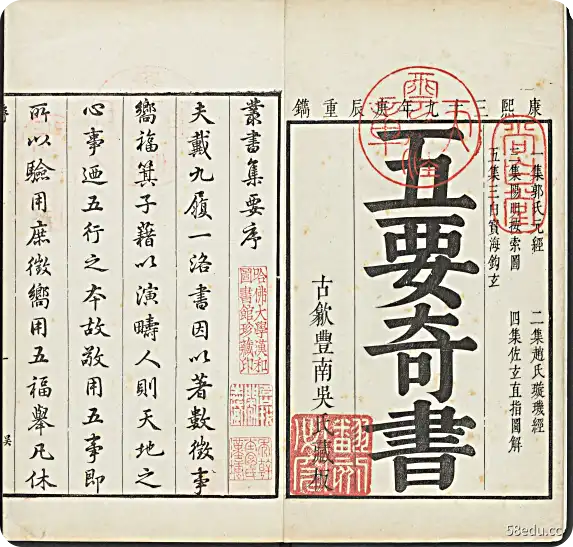 康熙三十九年庚辰重鐫
一集郭氏元經
二集趙氏璇璣經
三集陽明按索圖
四集佐玄直指圖解
五集三白寶海鈎玄
五要奇書
古歙豐南吳氏藏板
叢書集要序
夫戴九履一洛書因以著數徵事
嚮福箕子藉以演疇人則天地之
心事迺五行之本故敬用五事即
所以驗用庶徵嚮用五福舉凡休
哈佛大學漢和
圖書館珍藏印
一
吳
58edu.cc